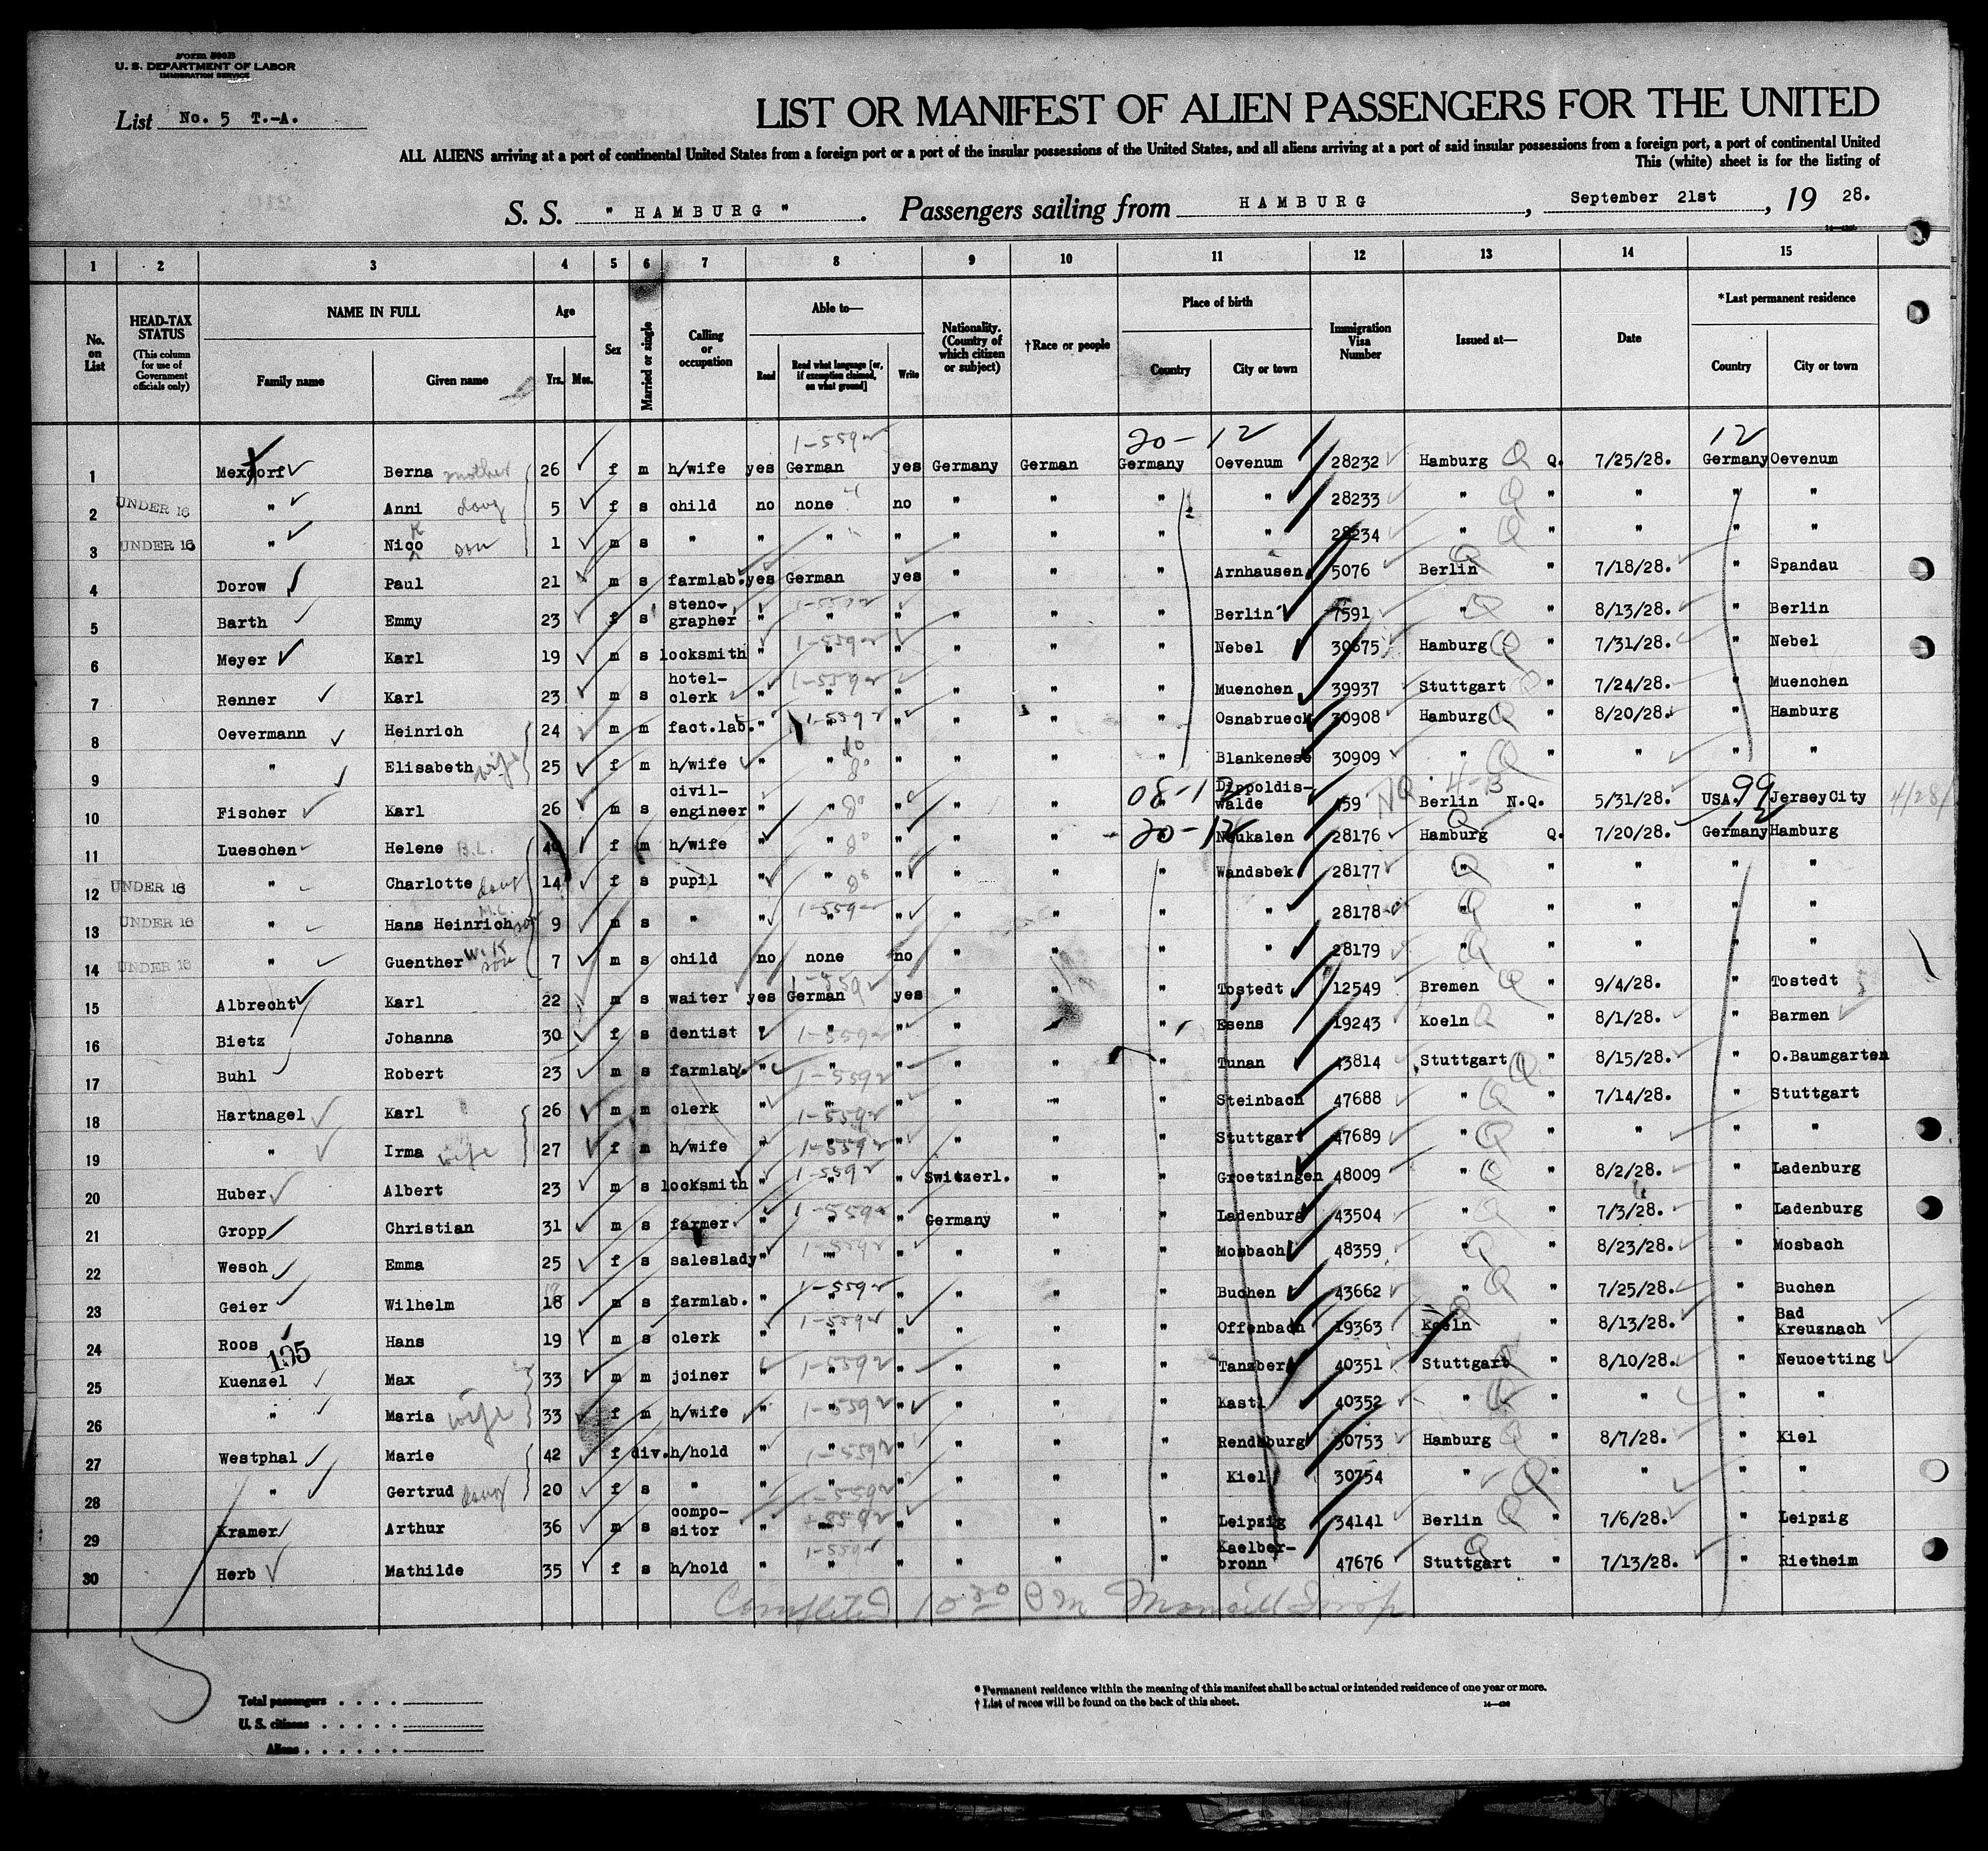 Form 500B
U. S. DEPARTMENT OF LABOR
IMMIGRATION SERVICE
List No. 5 T.-A.
LIST OR MANIFEST OF ALIEN PASSENGERS FOR THE UNITED
ALL ALIENS arriving at a port of continental United States from a foreign port or a port of the insular possessions of the United States, and all aliens arriving at a port of said insular possessions from a foreign port, a port of continental United
This (white) sheet is for the listing of
S. S. " HAMBURG ". Passengers sailing from HAMBURG, September 21st, 19 28.
1 2 3 4 5 6 7 8 9 10 11 12 13 14 15
No. on List
HEAD-TAX STATUS (This column for use of Government officials only)
NAME IN FULL Family name Given name
Age Yrs. Mos.
Sex
Married or single
Calling or occupation
Able to— Read Read what language [or, if exemption claimed, on what ground] Write
Nationality. (Country of which citizen or subject)
†Race or people
Place of birth Country City or town
Immigration Visa Number
Issued at—
Date
*Last permanent residence Country City or town
1-559 20-12 12
1 Mexdorf Berna mother 26 f m h/wife yes German yes Germany German Germany Oevenum 28232 Hamburg Q Q. 7/25/28. Germany Oevenum
2 UNDER 16 " Anni daug 5 f s child no none no " " " " 28233 " Q " " " "
3 UNDER 16 " Nico K son 1 m s " " " " " " " " 28234 " Q " " " "
4 Dorow Paul 21 m s farmlab. yes German yes " " " Arnhausen 5076 Berlin Q " 7/18/28. " Spandau
5 Barth Emmy 23 f s steno-grapher " " " " " " Berlin 7591 " Q " 8/13/28. " Berlin
6 Meyer Karl 19 m s locksmith " " " " " " Nebel 30675 Hamburg Q " 7/31/28. " Nebel
7 Renner Karl 23 m s hotel-clerk " " " " " " Muenchen 39937 Stuttgart " 7/24/28. " Muenchen
8 Oevermann Heinrich 24 m m fact.lab. " " " " " " Osnabrueck 30908 Hamburg Q " 8/20/28. " Hamburg
9 " Elisabeth wife 25 f m h/wife " " " " " " Blankenese 30909 " Q " " " "
10 Fischer Karl 26 m s civil-engineer " " " " " 08-12 Dippoldis-walde 459 NQ 4-B Berlin N.Q. 5/31/28. USA. 99 JerseyCity
11 Lueschen Helene B.L. 49 f m h/wife " " " " " 20-12 Neukalen 28176 Hamburg Q Q. 7/20/28. Germany 12 Hamburg
12 UNDER 16 " Charlotte daug 14 f s pupil " " " " " " Wandsbek 28177 " Q " " " "
13 UNDER 16 " Hans Heinrich M.C. son 9 m s " " " " " " " " 28178 " Q " " " "
14 UNDER 16 " Guenther W.K son 7 m s child no none no " " " " 28179 " Q " " " "
15 Albrecht Karl 22 m s waiter yes German yes " " " Tostedt 12549 Bremen Q " 9/4/28. " Tostedt
16 Bietz Johanna 30 f s dentist " " " " " " Esens 19243 Koeln Q " 8/1/28. " Barmen
17 Buhl Robert 23 m s farmlab. " " " " " " Tunan 43814 Stuttgart Q " 8/15/28. " O.Baumgarten
18 Hartnagel Karl 26 m m clerk " " " " " " Steinbach 47688 " Q " 7/14/28. " Stuttgart
19 " Irma wife 27 f m h/wife " " " " " " Stuttgart 47689 " Q " " " "
20 Huber Albert 23 m s locksmith " " " Switzerl. " " Groetzingen 48009 " Q " 8/2/28. " Ladenburg
21 Gropp Christian 31 m s farmer " " " Germany " " Ladenburg 43504 " Q " 7/3/28. " Ladenburg
22 Wesch Emma 25 f s saleslady " " " " " " Mosbach 48359 " Q " 8/23/28. " Mosbach
23 Geier Wilhelm 18 m s farmlab. " " " " " " Buchen 43662 " Q " 7/25/28. " Buchen
24 Roos Hans 19 m s clerk " " " " " " Offenbach 19363 Koeln Q " 8/13/28. " Bad Kreuznach
195
25 Kuenzel Max 33 m m joiner " " " " " " Tanzberg 40351 Stuttgart Q " 8/10/28. " Neuoetting
26 " Maria wife 33 f m h/wife " " " " " " Kastl 40352 " Q " " " "
27 Westphal Marie 42 f div. h/hold " " " " " " Rendsburg 30753 Hamburg Q " 8/7/28. " Kiel
28 " Gertrud daug 20 f s " " " " " " " Kiel 30754 " Q " " " "
29 Kramer Arthur 36 m s compo-sitor " " " " " " Leipzig 34141 Berlin Q " 7/6/28. " Leipzig
30 Herb Mathilde 35 f s h/hold " " " " " " Kaelber-bronn 47676 Stuttgart Q " 7/13/28. " Rietheim
Completed 10.30
Total passengers
U. S. citizens
Aliens
* Permanent residence within the meaning of this manifest shall be actual or intended residence of one year or more.
† List of races will be found on the back of this sheet.